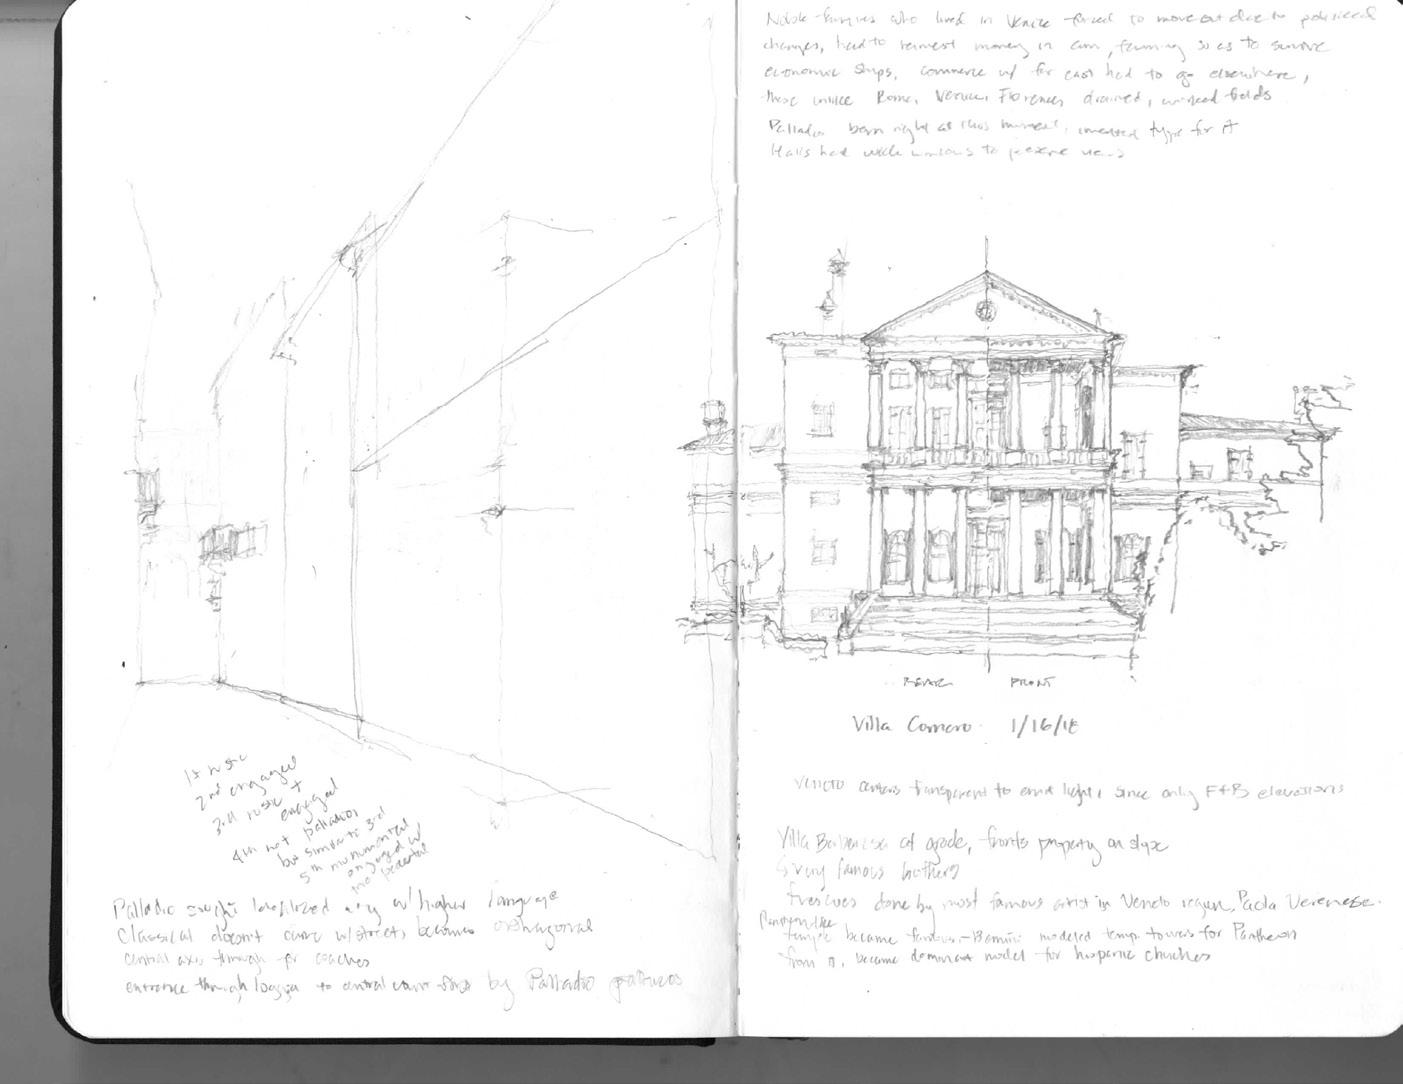 1st rustic
2nd engaged
3rd rustic +
engaged
4th not palladio
but similar to 3rd
5th monumental
engaged w/
pedestal
Palladio localized w/ higher language
Classical doesn't curve w/ street, becomes orthogonal
central axis through for coaches
entrance through loggia to central court by Palladio
Noble families who lived in Venice forced to move out due to political
changes, had to reinvest money in farming so as to survive
economic ships, commerce w/ far east had to go elsewhere,
these unlike Rome, Venice, Florence, drained, worked fields
Palladio born right at this moment, invented type for it
Halls had wide windows to views
REAR FRONT
Villa Cornaro 1/16/18
Veneto centers transparent to emit light, since only F+B elevations
Villa at grade, fronts property on slope
very famous brothers
frescoes done by most famous artist in Veneto region, Paola Verenese.
Pantheon like
temple became famous - Bernini modeled temp. towers for Pantheon
from it, became dominant model for hispanic churches